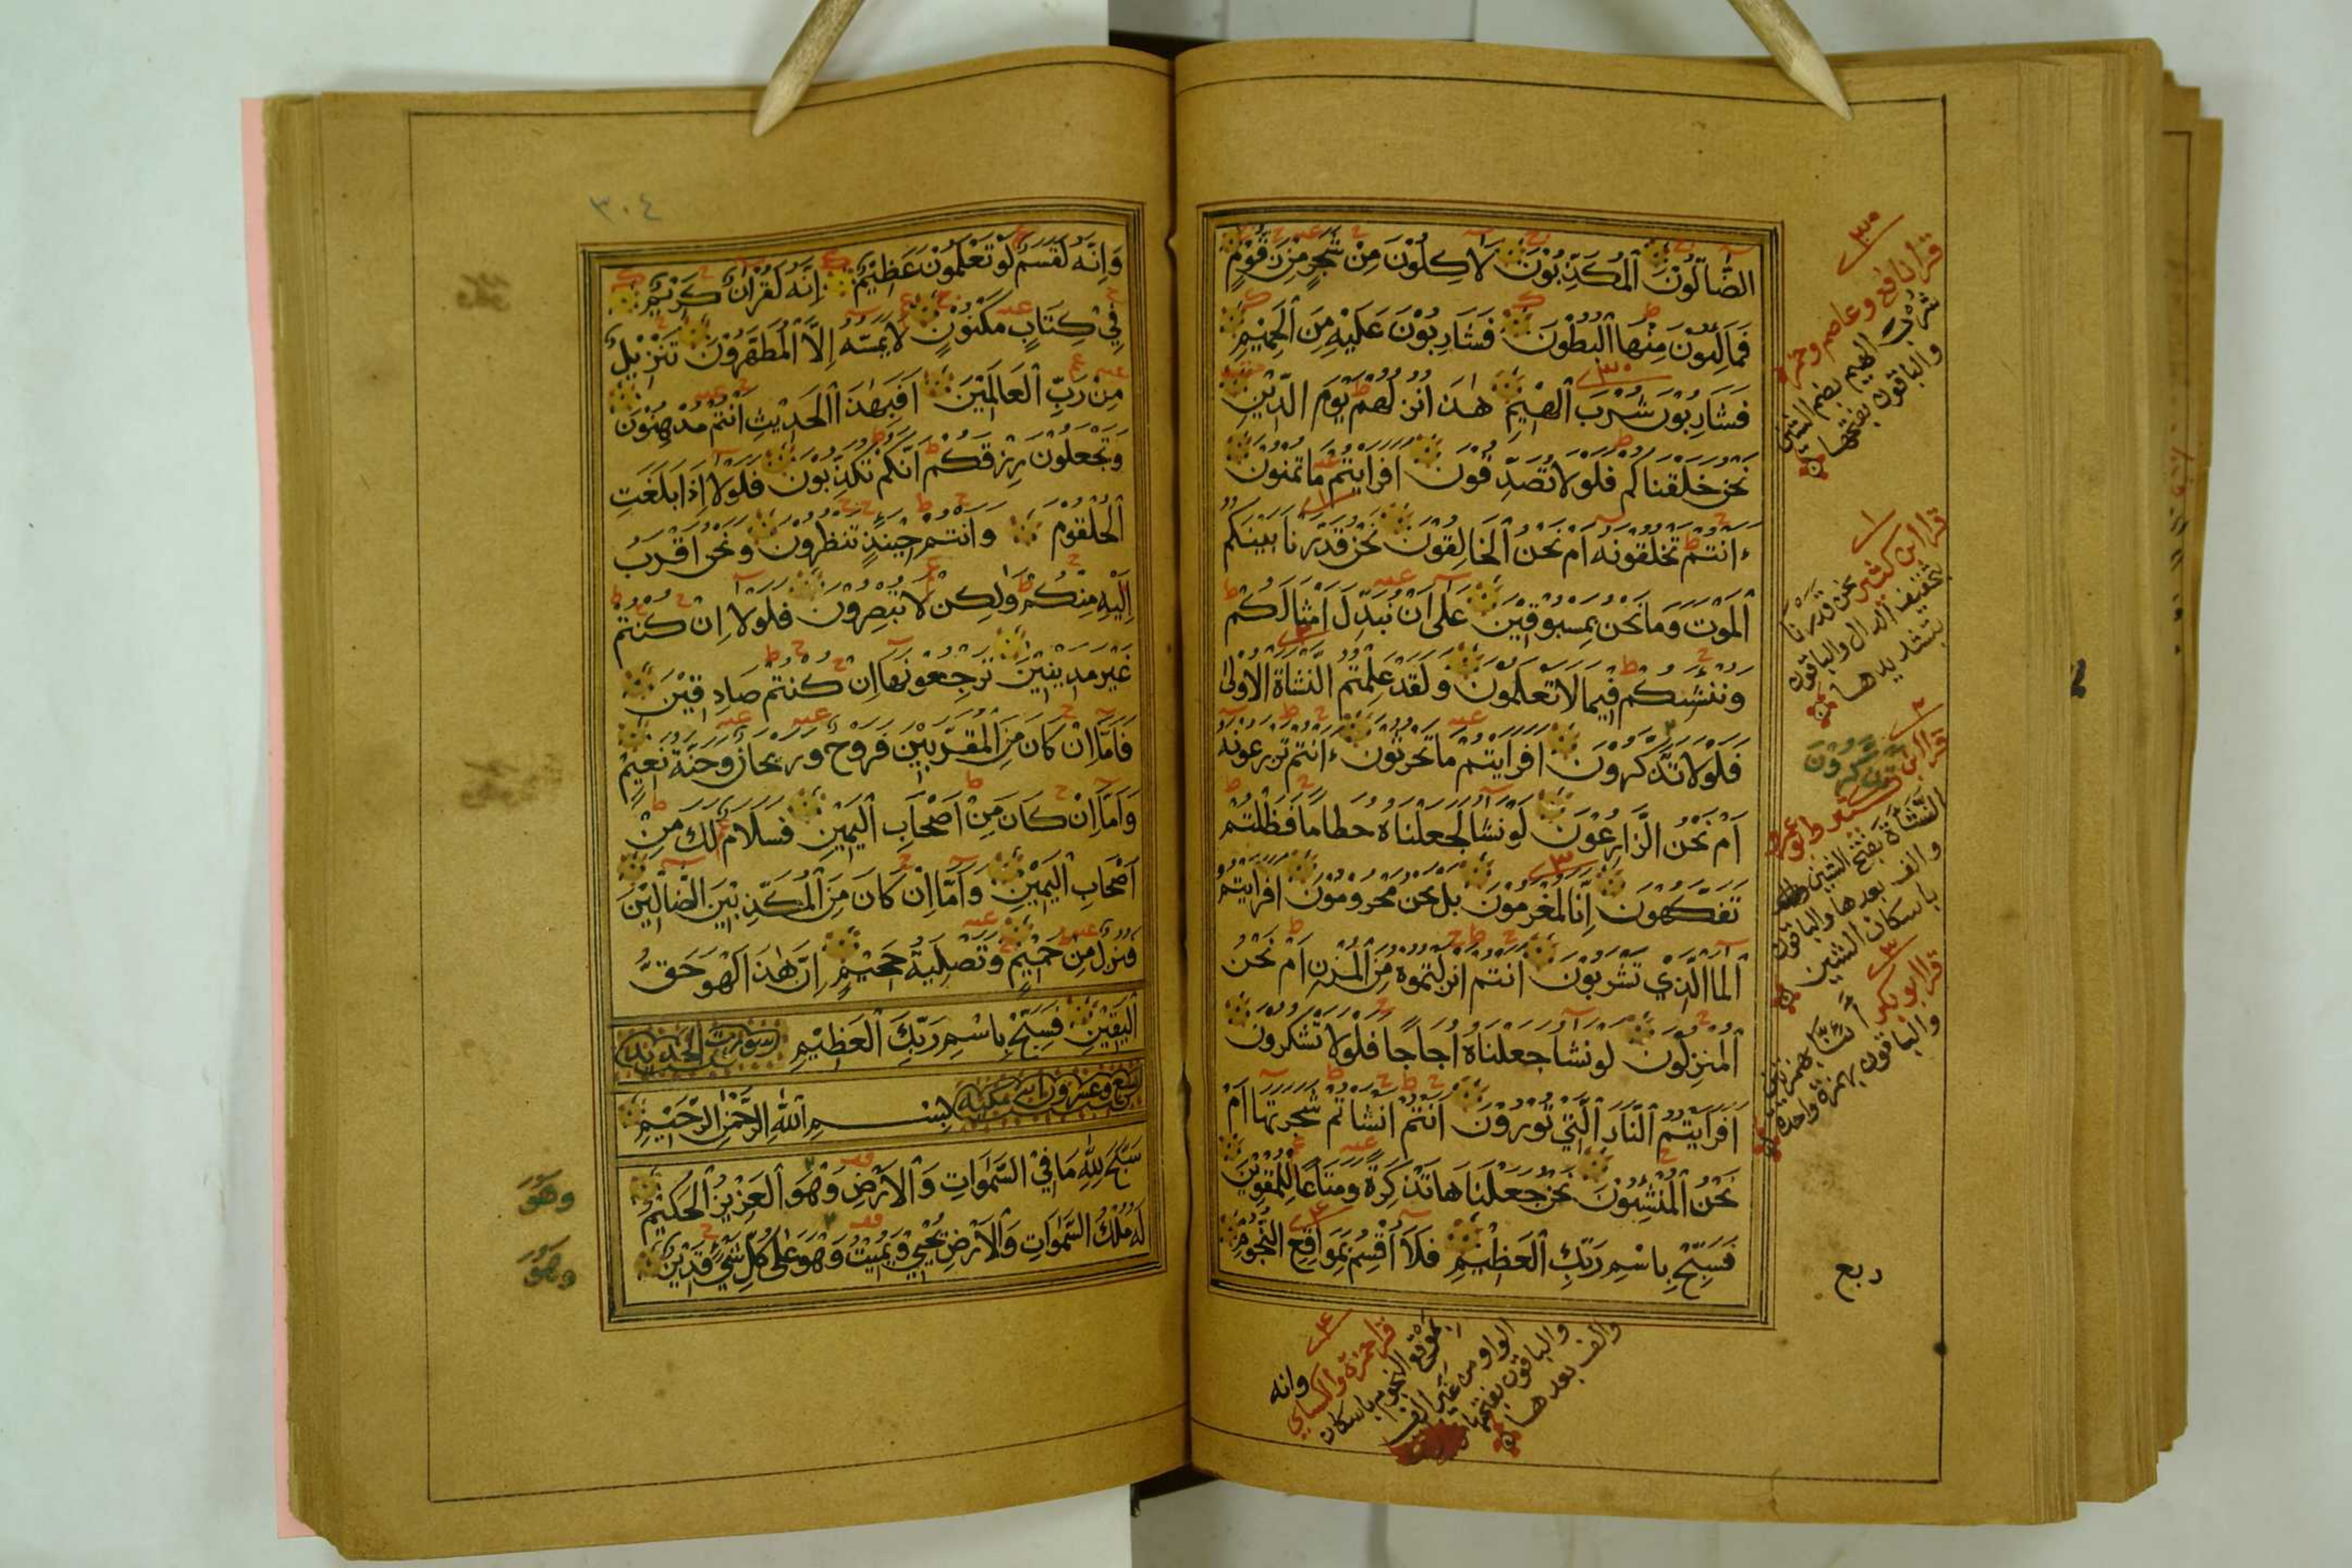 الضَّآلُّوْنَ الْمُكَذِّبُوْنَ لَاٰكِلُوْنَ مِنْ شَجَرٍ مِّنْ زَقُّوْمٍ
فَمَالِئُوْنَ مِنْهَا الْبُطُوْنَ فَشَارِبُوْنَ عَلَيْهِ مِنَ الْحَمِيْمِ
فَشَارِبُوْنَ شُرْبَ الْهِيْمِ هٰذَا نُزُلُهُمْ يَوْمَ الدِّيْنِ
نَحْنُ خَلَقْنَاكُمْ فَلَوْلَا تُصَدِّقُوْنَ اَفَرَاَيْتُمْ مَّا تُمْنُوْنَ
ءَاَنْتُمْ تَخْلُقُوْنَهُ اَمْ نَحْنُ الْخَالِقُوْنَ نَحْنُ قَدَّرْنَا بَيْنَكُمُ
الْمَوْتَ وَمَا نَحْنُ بِمَسْبُوْقِيْنَ عَلٰى اَنْ نُّبَدِّلَ اَمْثَالَكُمْ
وَنُنْشِئَكُمْ فِيْمَا لَا تَعْلَمُوْنَ وَلَقَدْ عَلِمْتُمُ النَّشْاَةَ الْاُوْلٰى
فَلَوْلَا تَذَّكَّرُوْنَ اَفَرَاَيْتُمْ مَّا تَحْرُثُوْنَ ءَاَنْتُمْ تَزْرَعُوْنَهُ
اَمْ نَحْنُ الزَّارِعُوْنَ لَوْ نَشَآءُ لَجَعَلْنَاهُ حُطَامًا فَظَلْتُمْ
تَفَكَّهُوْنَ اِنَّا لَمُغْرَمُوْنَ بَلْ نَحْنُ مَحْرُوْمُوْنَ اَفَرَاَيْتُمُ
الْمَآءَ الَّذِيْ تَشْرَبُوْنَ ءَاَنْتُمْ اَنْزَلْتُمُوْهُ مِنَ الْمُزْنِ اَمْ نَحْنُ
الْمُنْزِلُوْنَ لَوْ نَشَآءُ جَعَلْنَاهُ اُجَاجًا فَلَوْلَا تَشْكُرُوْنَ
اَفَرَاَيْتُمُ النَّارَ الَّتِيْ تُوْرُوْنَ ءَاَنْتُمْ اَنْشَاْتُمْ شَجَرَتَهَا اَمْ
نَحْنُ الْمُنْشِئُوْنَ نَحْنُ جَعَلْنَاهَا تَذْكِرَةً وَّمَتَاعًا لِّلْمُقْوِيْنَ
فَسَبِّحْ بِاسْمِ رَبِّكَ الْعَظِيْمِ فَلَآ اُقْسِمُ بِمَوَاقِعِ النُّجُوْمِ
قرا نافع وعاصم وحمزة
شرب الهيم بضم الشين
والباقون بفتحها
قرا ابن كثير نحن قدرنا
بتخفيف الدال والباقون
بتشديدها
تذكرون
قرا ابن كثير وابو عمرو
النشاة بفتح الشين
والف بعدها والباقون
باسكان الشين
قرا ابو بكر أئنا بهمزتين
والباقون بهمزة واحدة
ربع
قرا حمزة والكسايي
بموقع النجوم باسكان
الواو من غير الف
والباقون بفتحها
والف بعدها
وانه
٣٠٤
وَاِنَّهُ لَقَسَمٌ لَّوْ تَعْلَمُوْنَ عَظِيْمٌ اِنَّهُ لَقُرْاٰنٌ كَرِيْمٌ
فِيْ كِتَابٍ مَّكْنُوْنٍ لَّا يَمَسُّهُ اِلَّا الْمُطَهَّرُوْنَ تَنْزِيْلٌ
مِّنْ رَّبِّ الْعَالَمِيْنَ اَفَبِهٰذَا الْحَدِيْثِ اَنْتُمْ مُّدْهِنُوْنَ
وَتَجْعَلُوْنَ رِزْقَكُمْ اَنَّكُمْ تُكَذِّبُوْنَ فَلَوْلَا اِذَا بَلَغَتِ
الْحُلْقُوْمَ وَاَنْتُمْ حِيْنَئِذٍ تَنْظُرُوْنَ وَنَحْنُ اَقْرَبُ
اِلَيْهِ مِنْكُمْ وَلٰكِنْ لَّا تُبْصِرُوْنَ فَلَوْلَا اِنْ كُنْتُمْ
غَيْرَ مَدِيْنِيْنَ تَرْجِعُوْنَهَا اِنْ كُنْتُمْ صَادِقِيْنَ
فَاَمَّا اِنْ كَانَ مِنَ الْمُقَرَّبِيْنَ فَرَوْحٌ وَّرَيْحَانٌ وَّجَنَّةُ نَعِيْمٍ
وَاَمَّا اِنْ كَانَ مِنْ اَصْحَابِ الْيَمِيْنِ فَسَلَامٌ لَّكَ مِنْ
اَصْحَابِ الْيَمِيْنِ وَاَمَّا اِنْ كَانَ مِنَ الْمُكَذِّبِيْنَ الضَّآلِّيْنَ
فَنُزُلٌ مِّنْ حَمِيْمٍ وَّتَصْلِيَةُ جَحِيْمٍ اِنَّ هٰذَا لَهُوَ حَقُّ
الْيَقِيْنِ فَسَبِّحْ بِاسْمِ رَبِّكَ الْعَظِيْمِ سورت الحديد
تسع وعشرون اية مكية بِسْمِ اللّٰهِ الرَّحْمٰنِ الرَّحِيْمِ
سَبَّحَ لِلّٰهِ مَا فِي السَّمٰوَاتِ وَالْاَرْضِ وَهُوَ الْعَزِيْزُ الْحَكِيْمُ
لَهُ مُلْكُ السَّمٰوَاتِ وَالْاَرْضِ يُحْيِيْ وَيُمِيْتُ وَهُوَ عَلٰى كُلِّ شَيْءٍ قَدِيْرٌ
وهو
وهو